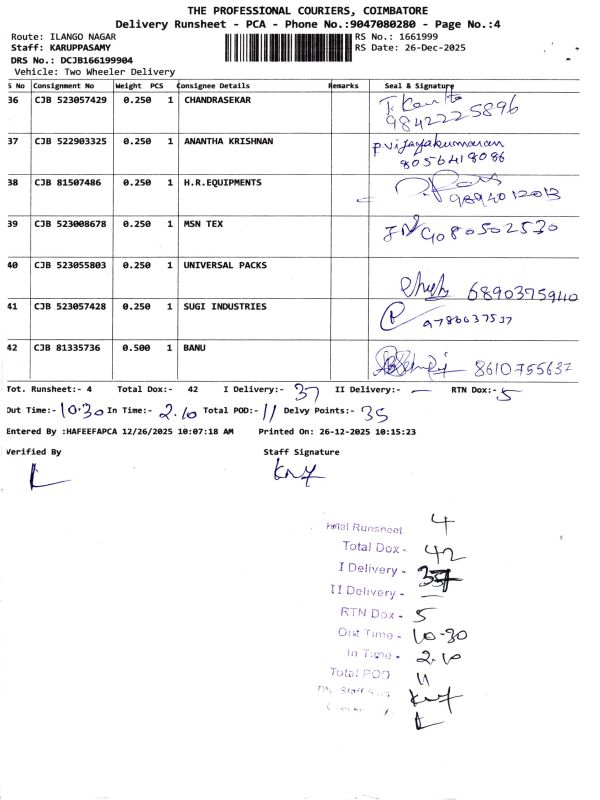 THE PROFESSIONAL COURIERS, COIMBATORE
Delivery Runsheet - PCA - Phone No.:9047080280 - Page No.:4
Route: ILANGO NAGAR RS No.: 1661999
Staff: KARUPPASAMY RS Date: 26-Dec-2025
DRS No.: DCJB166199904
Vehicle: Two Wheeler Delivery
S No Consignment No Weight PCS Consignee Details Remarks Seal & Signature
36 CJB 523057429 0.250 1 CHANDRASEKAR
9842225896
37 CJB 522903325 0.250 1 ANANTHA KRISHNAN P.Vijayakumaran
8056418086
38 CJB 81507486 0.250 1 H.R.EQUIPMENTS
9894012013
39 CJB 523008678 0.250 1 MSN TEX 9080502530
40 CJB 523055803 0.250 1 UNIVERSAL PACKS
6890375940
41 CJB 523057428 0.250 1 SUGI INDUSTRIES
9786637537
42 CJB 81335736 0.500 1 BANU
8610755637
Tot. Runsheet:- 4 Total Dox:- 42 I Delivery:- 37 II Delivery:- — RTN Dox:- 5
Out Time:- 10.30 In Time:- 2.10 Total POD:- 11 Delvy Points:- 35
Entered By :HAFEEFAPCA 12/26/2025 10:07:18 AM Printed On: 26-12-2025 10:15:23
Verified By Staff Signature
Total Runsheet 4
Total Dox - 42
I Delivery - 37
II Delivery - —
RTN Dox - 5
Out Time - 10-30
In Time - 2.10
Total POD 11